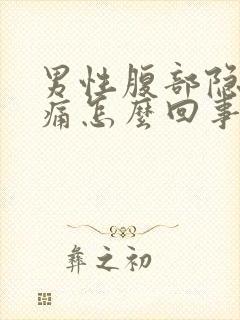 男性腹部隐
痛怎麽回事
彝之初